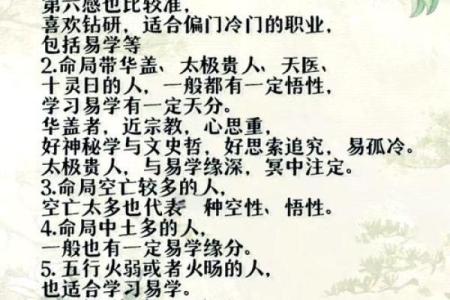 第六感也比较准，
喜欢钻研，适合偏门冷门的职业，
包括易学等
2.命局带华盖、太极贵人、天医、
十灵日的人，一般都有一定悟性，
学习易学有一定天分。
华盖者，近宗教，心思重，
好神秘学与文史哲，好思索追究，易孤冷。
太极贵人，与易学缘深，冥中注定。
3.命局空亡较多的人，
空亡太多也代表一种空性、悟性。
4.命局中土多的人，
一般也有一定易学缘分。
5.五行火弱或者火旸的人，
也适合学习易学。